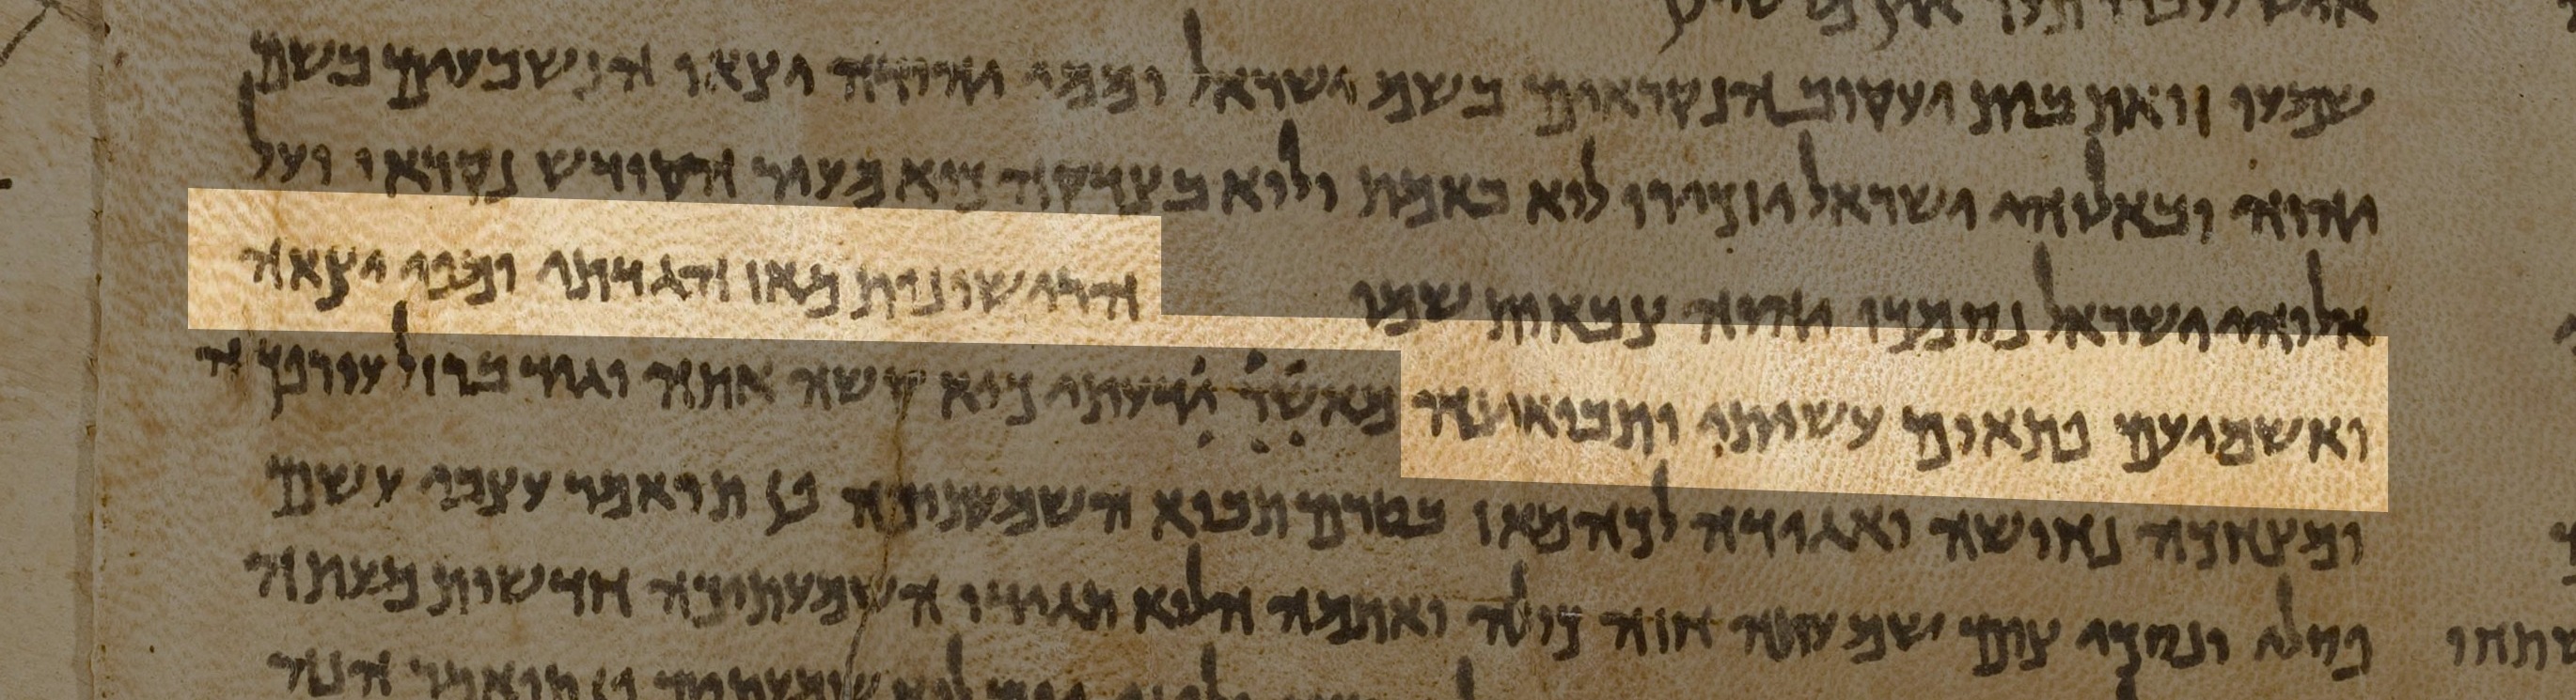 שמעו זואת בית יעקוב הנקראים בשם ישראל וממי יהודה יצאו הנשבעים בשם
יהוה ובאלוהי ישראל יזכירו לוא באמת ולוא בצדקה כיא מעיר הקודש נקראו ועל
אלוהי ישראל נסמכו יהוה צבאות שמו הרישונות מאז הגדתי ומפי יצאה
ואשמיעם פתאום עשיתי ותבואינה מאשר ידעתי כיא קשה אתה וגיד ברזל עורפך ה
ומצחכה נחושה ואגידה לכה מאז בטרם תבוא השמעתיכה פן תואמר עצבי עשם
פסלי ונסכי צום שמעתה חזה כולה ואתמה הלוא תגידו השמעתיכה חדשות מעתה
פן תואמר הנה